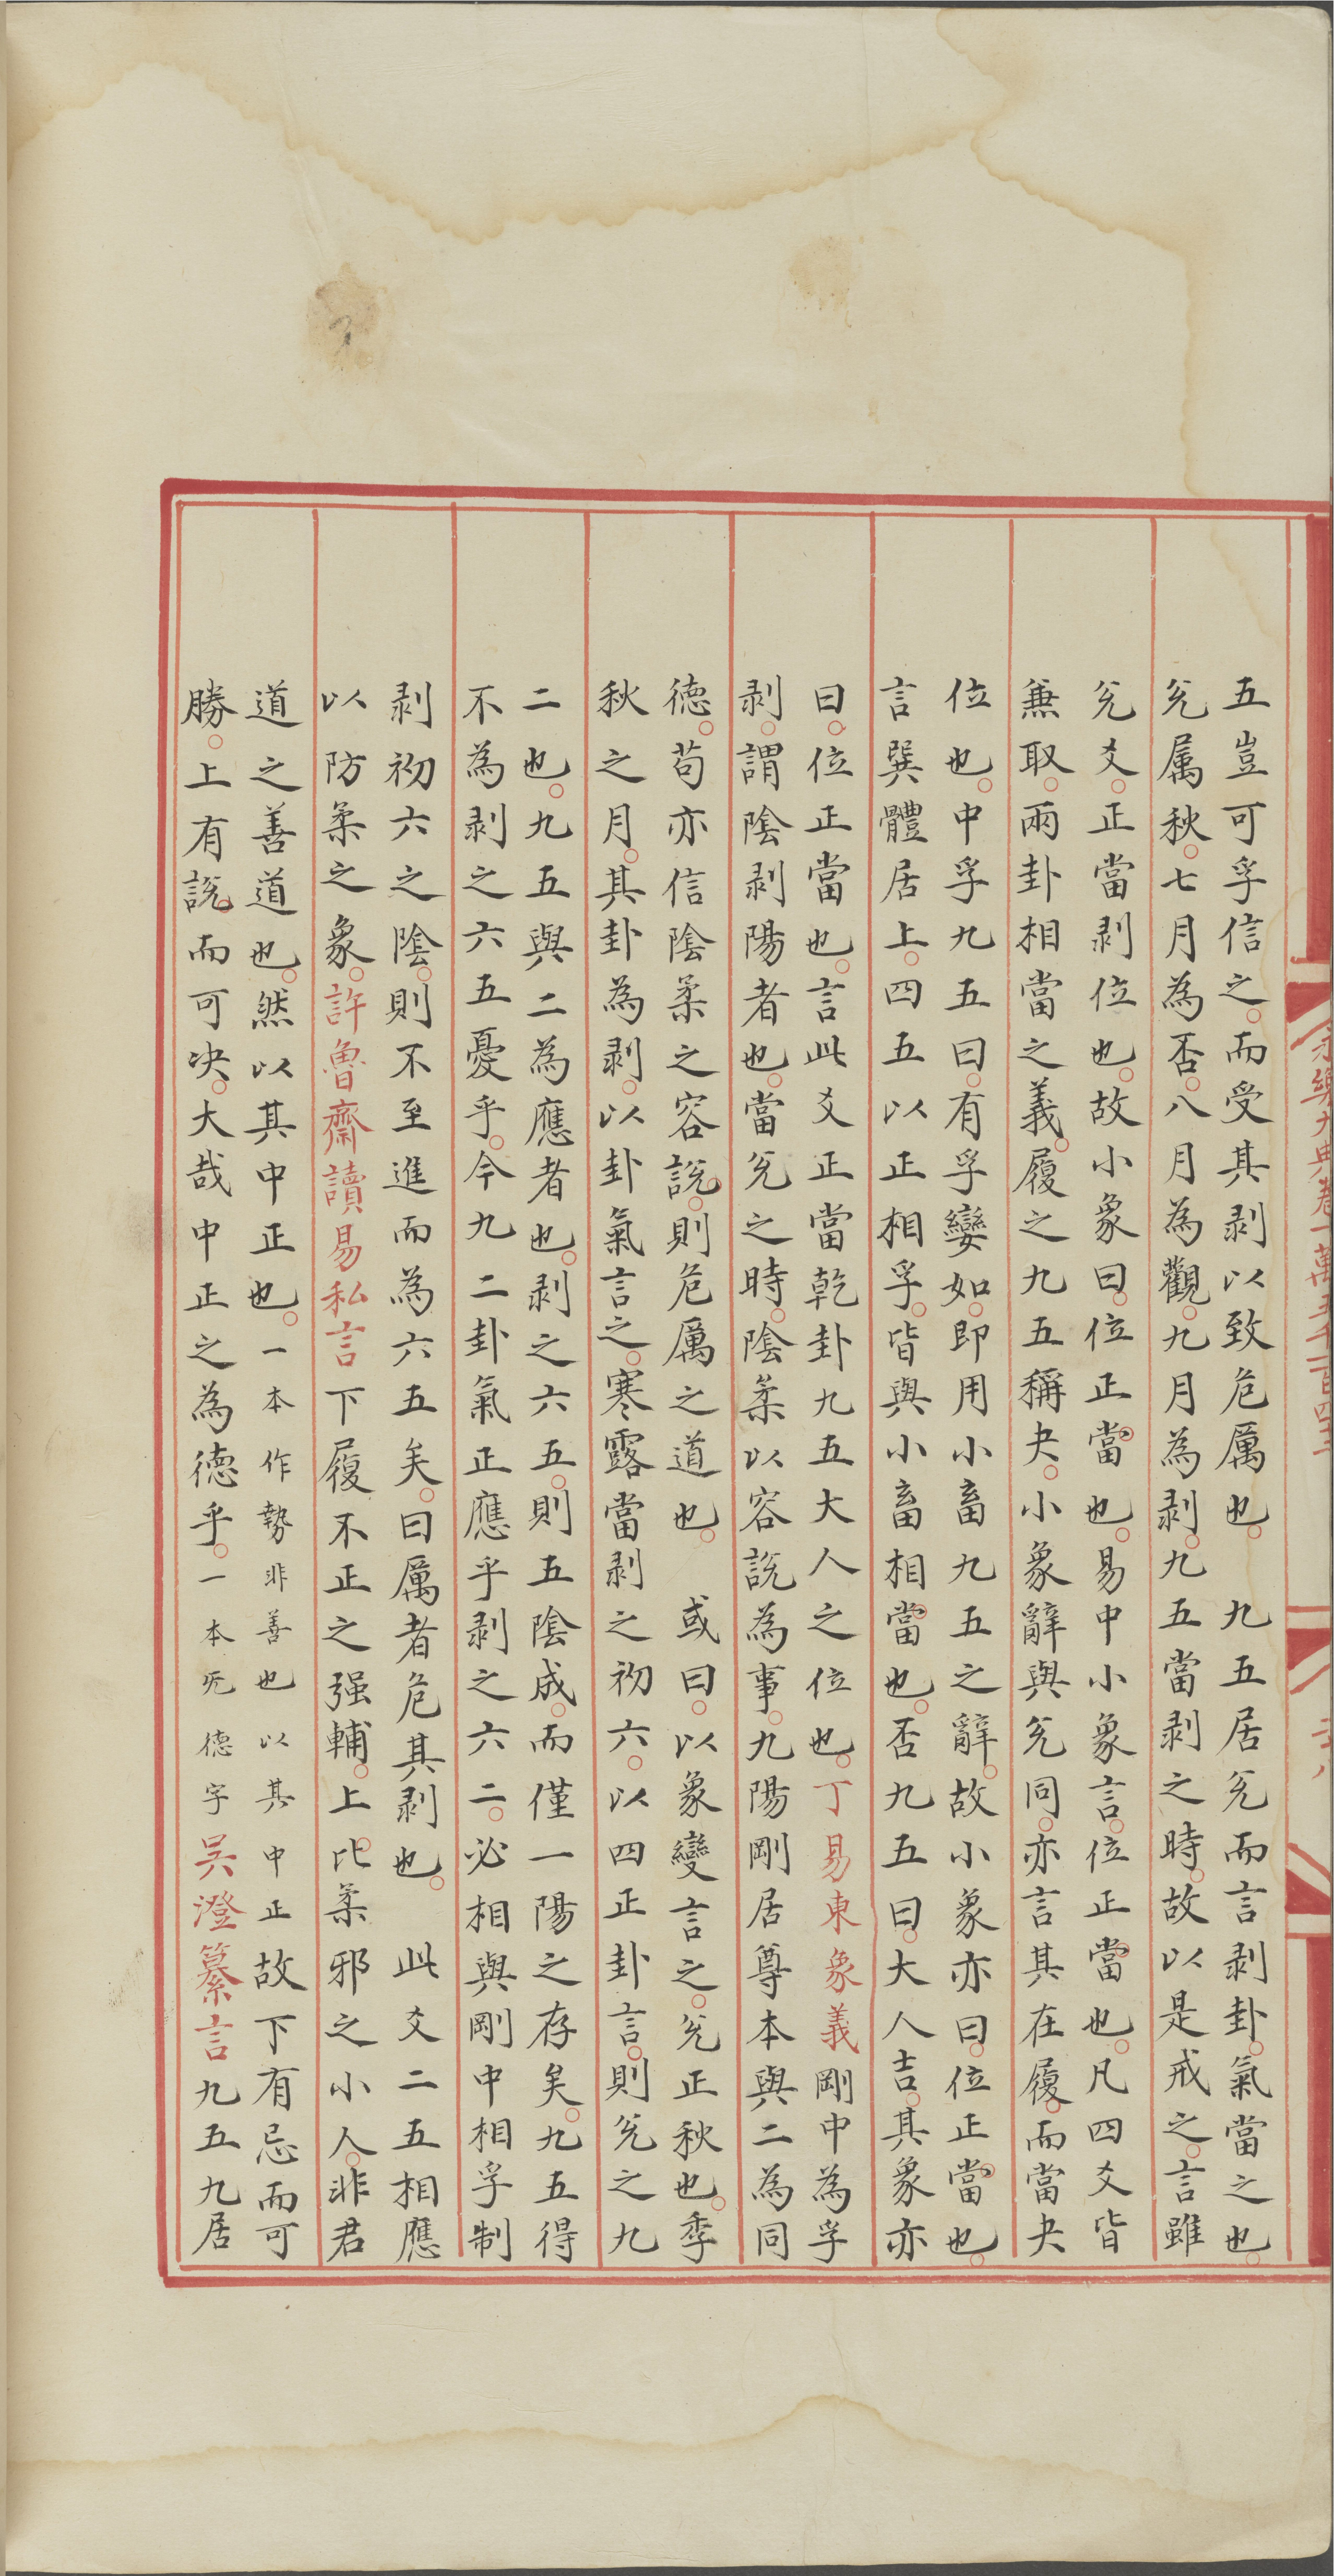 五豈可孚信之而受其剥以致危厲也　九五居兊而言剥卦氣當之也
兊属秋七月為否八月為觀九月為剥九五當剥之時故以是戒之言雖
兊爻正當剥位也故小象曰位正當也易中小象言位正當也凡四爻皆
兼取兩卦相當之義履之九五稱夬小象辭與兊同亦言其在履而當夬
位也中孚九五曰有孚攣如即用小畜九五之辭故小象亦曰位正當也
言巽體居上四五以正相孚皆與小畜相當也否九五曰大人吉其象亦
曰位正當也言此爻正當乾卦九五大人之位也丁易東象義剛中為孚
剥謂陰剥陽者也當兊之時陰柔以容説為事九陽剛居尊本與二為同
德苟亦信陰柔之容説則危厲之道也　或曰以象變言之兊正秋也季
秋之月其卦為剥以卦氣言之寒露當剥之初六以四正卦言則兊之九
二也九五與二為應者也剥之六五則五陰成而僅一陽之存矣九五得
不為剥之六五憂乎今九二卦氣正應乎剥之六二必相與剛中相孚制
剥初六之陰則不至進而為六五矣曰厲者危其剥也　此爻二五相應
以防柔之象許魯齋讀易私言下履不正之强輔上比柔邪之小人非君
道之善道也然以其中正也一本作勢非善也以其中正故下有忌而可
勝上有説而可决大哉中正之為德乎一本旡德字吳澄纂言九五九居
永樂大典卷一萬五千一百四十三